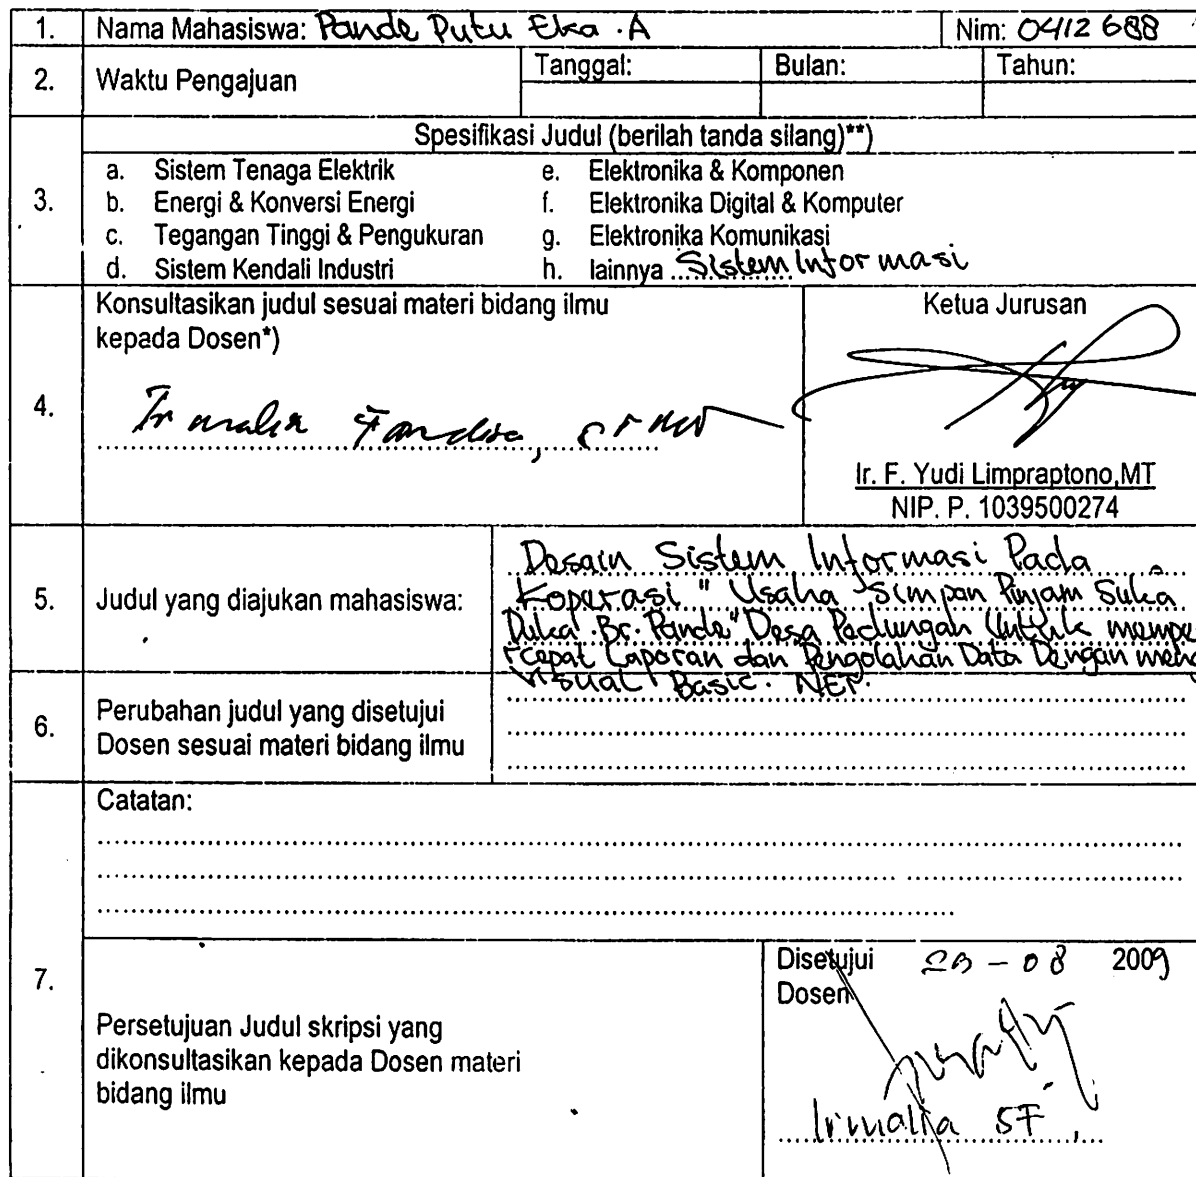 1. Nama Mahasiswa: Pande Putu Eka .A Nim: 0412688
2. Waktu Pengajuan Tanggal: Bulan: Tahun:
Spesifikasi Judul (berilah tanda silang)**)
3.
a. Sistem Tenaga Elektrik e. Elektronika & Komponen
b. Energi & Konversi Energi f. Elektronika Digital & Komputer
c. Tegangan Tinggi & Pengukuran g. Elektronika Komunikasi
d. Sistem Kendali Industri h. lainnya Sistem Informasi
4.
Konsultasikan judul sesuai materi bidang ilmu
kepada Dosen*)
Ketua Jurusan
Ir. F. Yudi Limpraptono,MT
NIP. P. 1039500274
5. Judul yang diajukan mahasiswa:
Desain Sistem Informasi Pada
Koperasi " Usaha Simpan Pinjam Suka
Duka .Br. Pande" Desa Pedungan Untuk mempe
rcepat Laporan dan Pengolahan Data Dengan meng
Visual Basic. NET.
6.
Perubahan judul yang disetujui
Dosen sesuai materi bidang ilmu
Catatan:
7.
Persetujuan Judul skripsi yang
dikonsultasikan kepada Dosen materi
bidang ilmu
Disetujui - 08 2009
Dosen
Irmalia ST